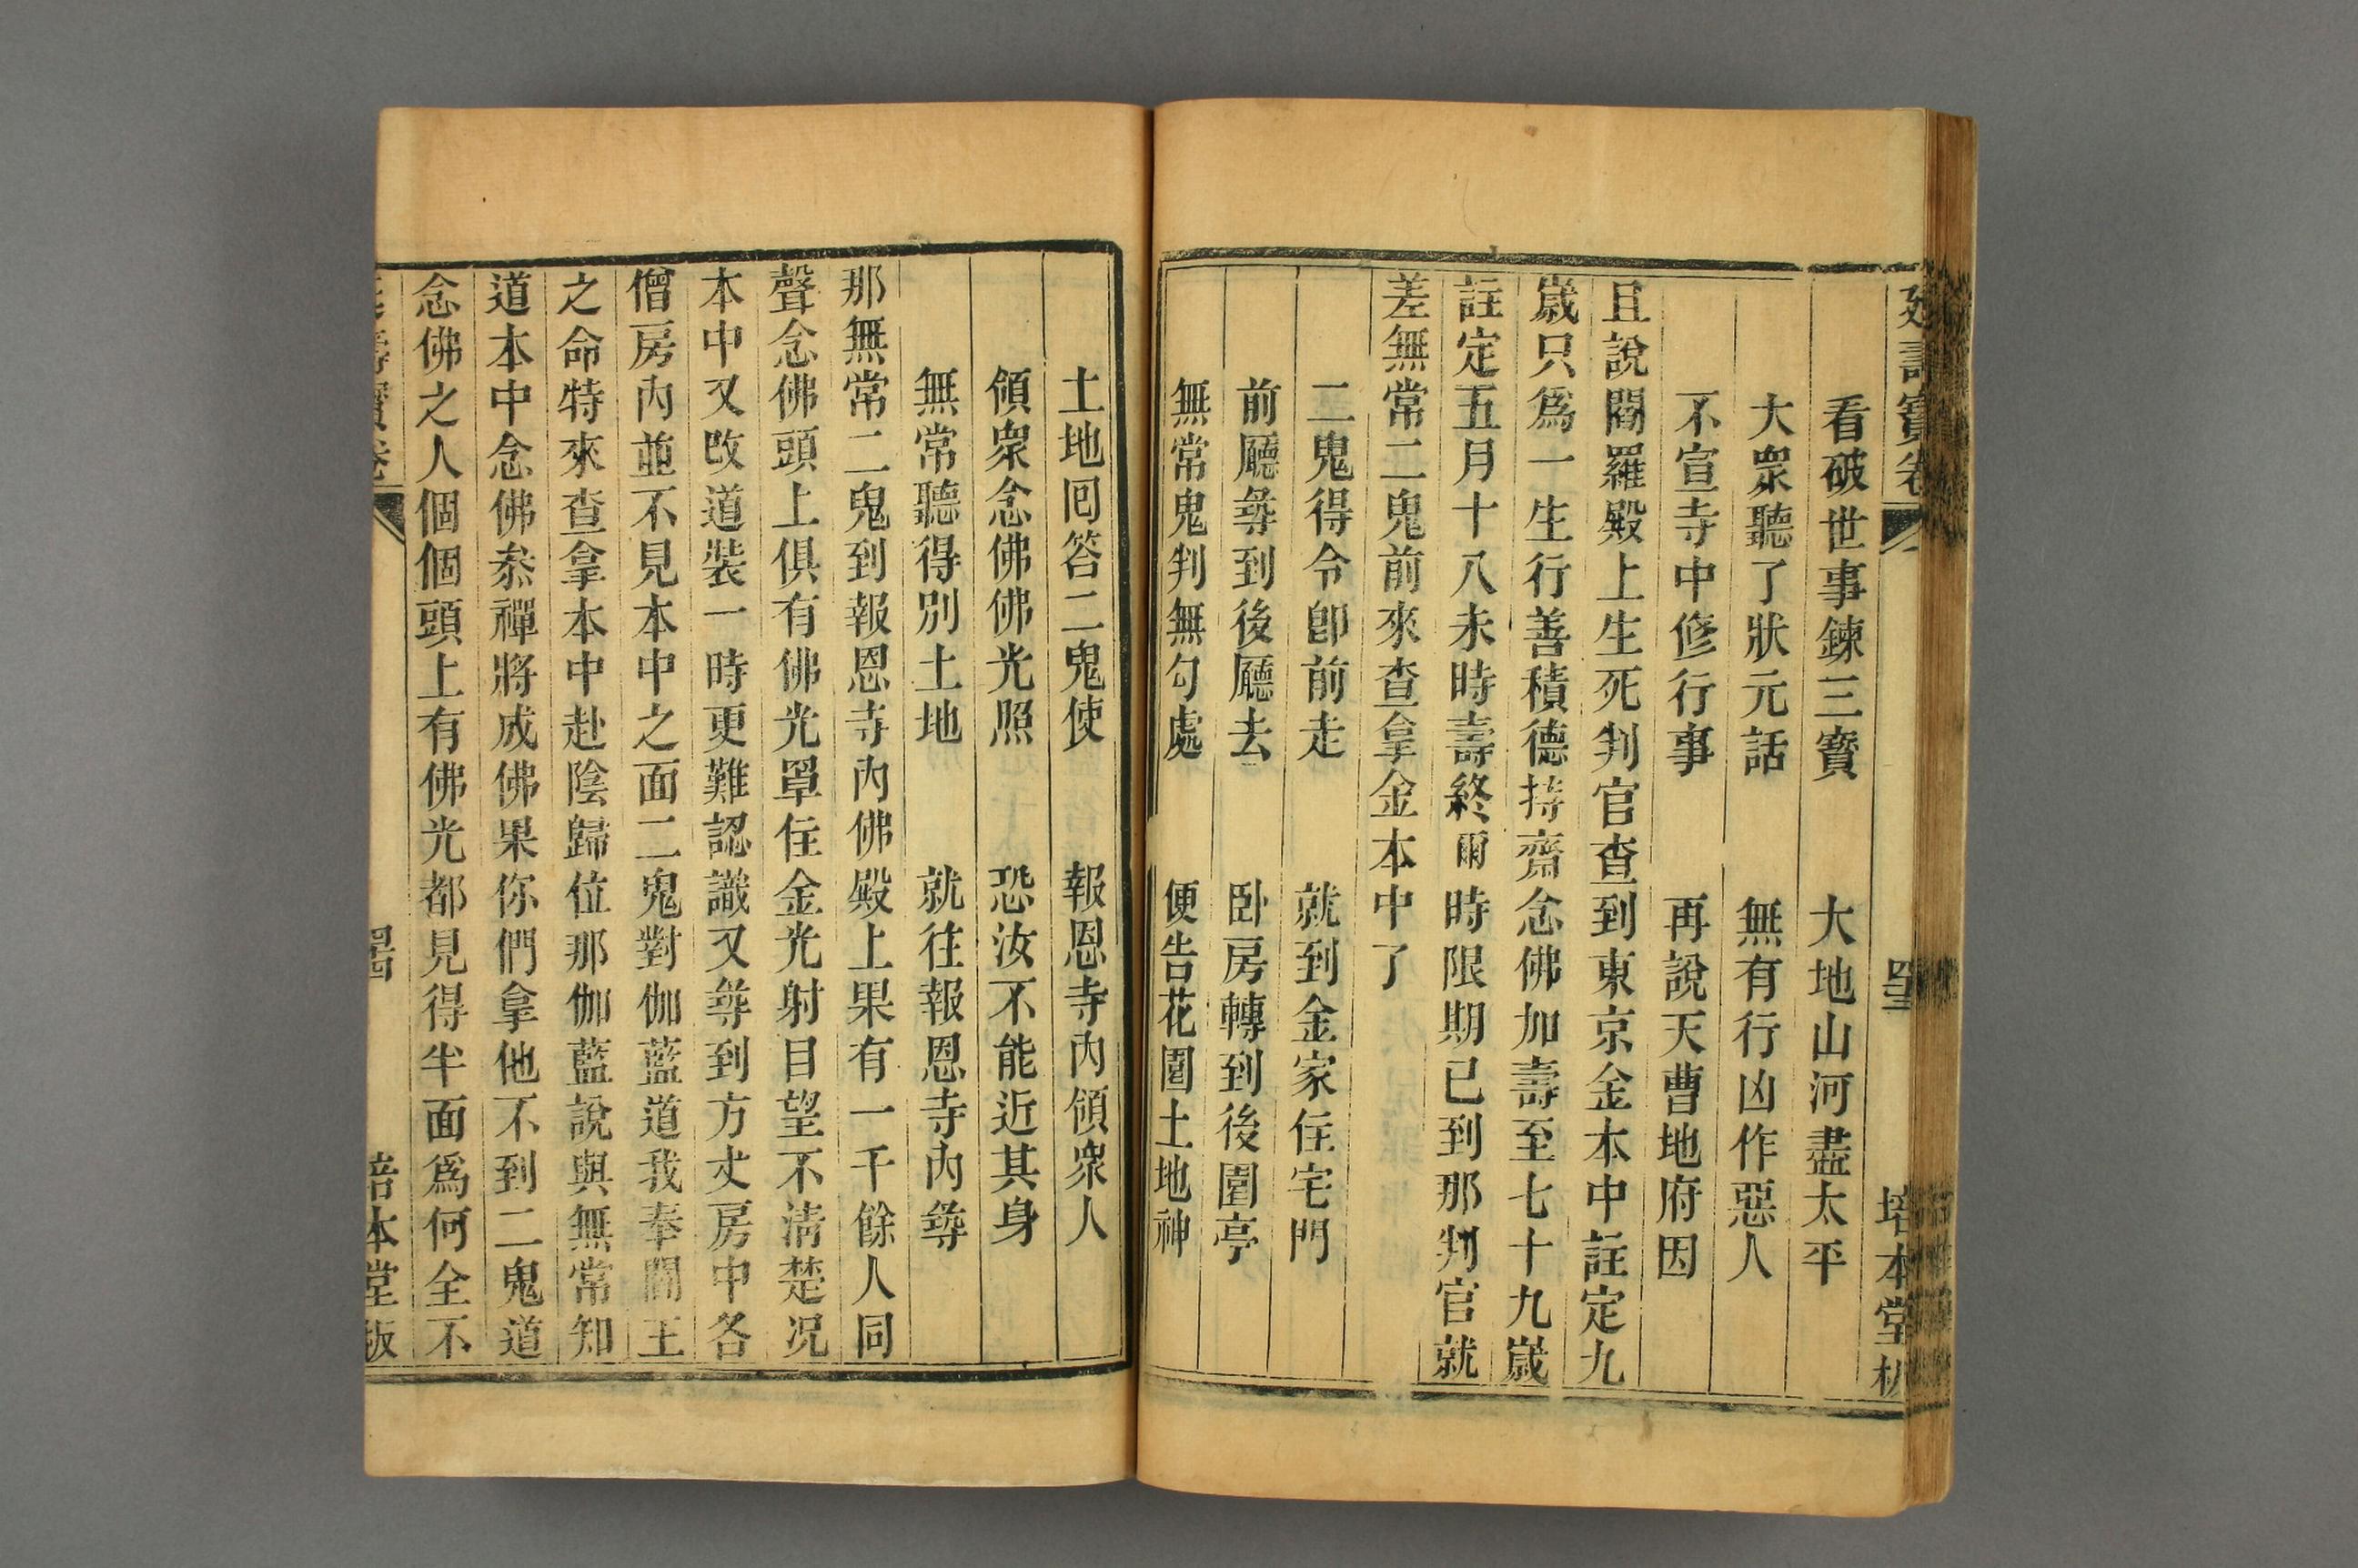 延壽寶卷 罡 培本堂板
看破世事鍊三寶 大地山河盡太平
大衆聽了狀元話 無有行凶作惡人
不宣寺中修行事 再說天曹地府因
且說閻羅殿上生死判官查到東京金本中註定九
歲只爲一生行善積德持齋念佛加壽至七十九歲
註定五月十八未時壽終爾時限期已到那判官就
差無常二鬼前來查拿金本中了
二鬼得令卽前走 就到金家住宅門
前廳尋到後廳去 卧房轉到後園亭
無常鬼判無勾處 便告花園土地神
土地囘答二鬼使 報恩寺內領衆人
領衆念佛佛光照 恐汝不能近其身
無常聽得別土地 就往報恩寺內尋
那無常二鬼到報恩寺內佛殿上果有一千餘人同
聲念佛頭上俱有佛光罩住金光射目望不淸楚况
本中又改道裝一時更難認識又尋到方丈房中各
僧房內並不見本中之面二鬼對伽藍道我奉閻王
之命特來查拿本中赴陰歸位那伽藍說與無常知
道本中念佛叅禪將成佛果你們拿他不到二鬼道
念佛之人個個頭上有佛光都見得半面爲何全不
壽寶卷 培本堂板